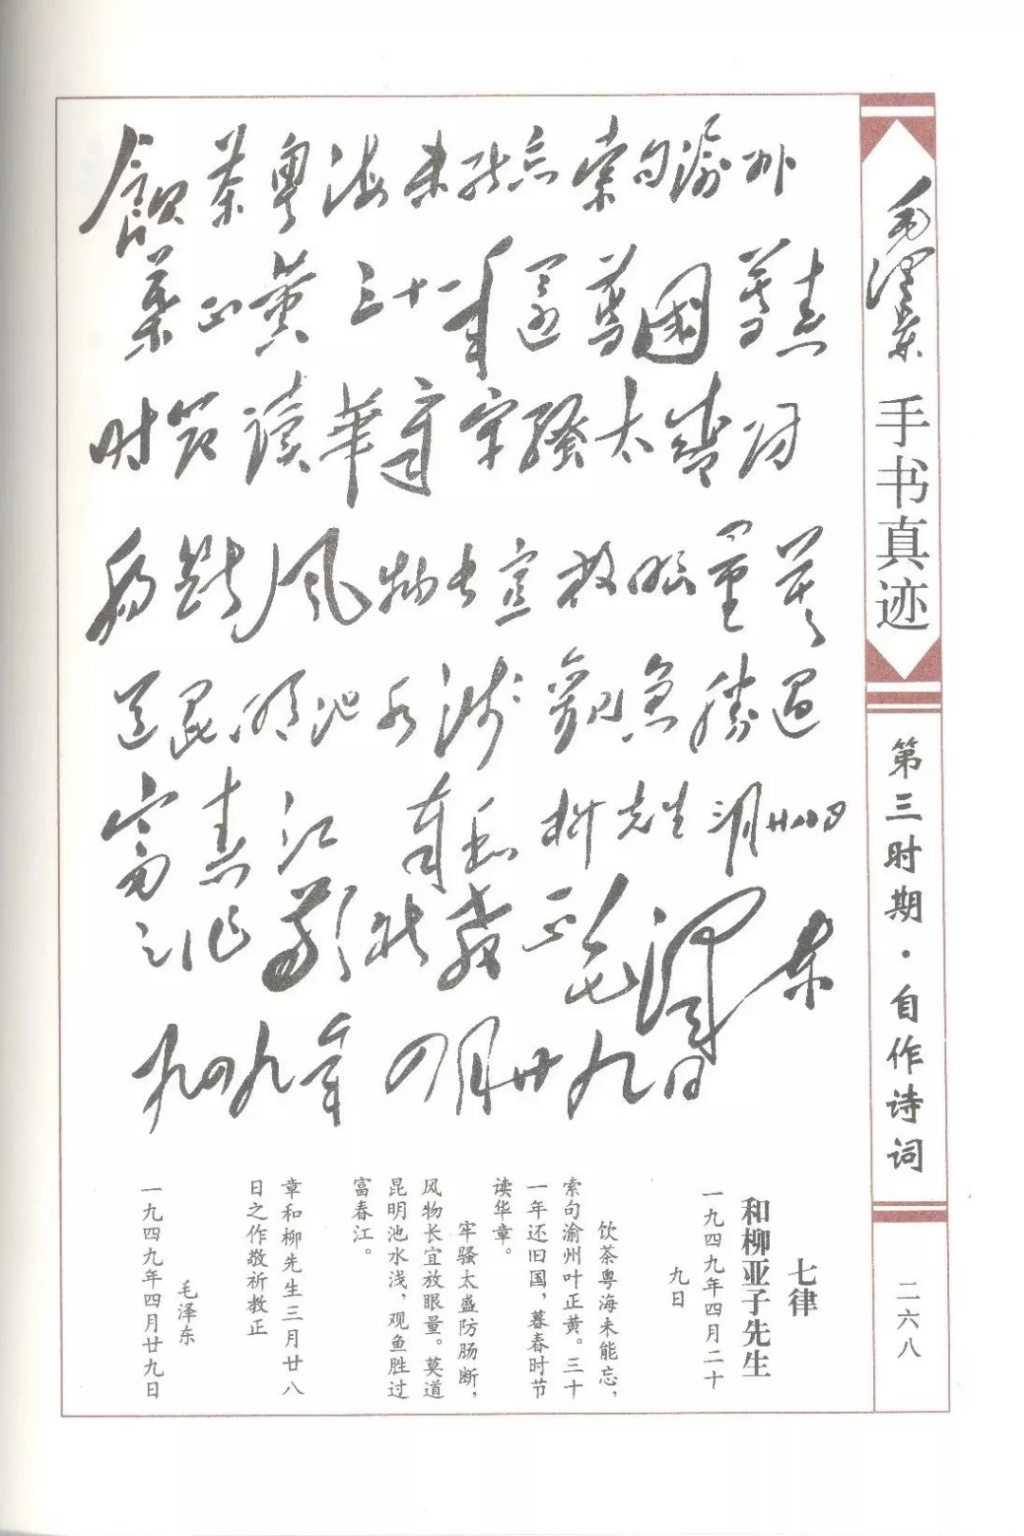 飲茶粤海未能忘索句渝州
葉正黄三十一年還舊國暮春
时節读華章牢騷太盛防
肠断风物长宜放眼量莫
道昆明池水浅觀鱼勝过
富春江 奉和柳先生三月廿八日
之作敬祈教正 毛澤东
一九四九年四月廿九日
毛泽东
手书真迹
第三时期·自作诗词
二六八
七律
和柳亚子先生
一九四九年四月二十
九日
饮茶粤海未能忘，
索句渝州叶正黄。三十
一年还旧国，暮春时节
读华章。
牢骚太盛防肠断，
风物长宜放眼量。莫道
昆明池水浅，观鱼胜过
富春江。
章和柳先生三月廿八
日之作敬祈教正
毛泽东
一九四九年四月廿九日